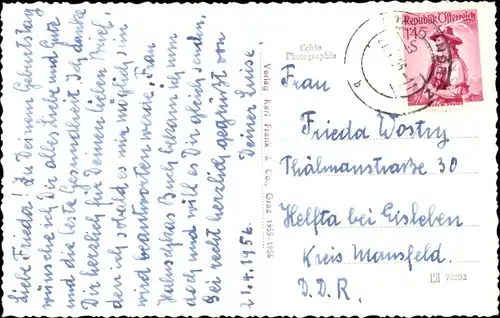 Liebe Frieda! Zu Deinem Geburtstag
wünsche ich Dir alles liebe und Gute
und die beste Gesundheit. Ich danke
Dir herzlich für Deinen lieben Brief,
den ich sobald es mir möglich ist
wird beantworten werde. Frau
Buch bekam ich nun
doch und will es Dir gleich senden.
Sei recht herzlich gegrüßt von
Deiner Luise.
21.4.1956.
Echte
Photographie
Verlag Karl Frank & Co., Graz 1955-1956
Republik Österreich
1.45
S
Frau
Frieda Wostry
Thälmannstraße 30
Helfta bei Eisleben
Kreis Mansfeld.
D.D.R.